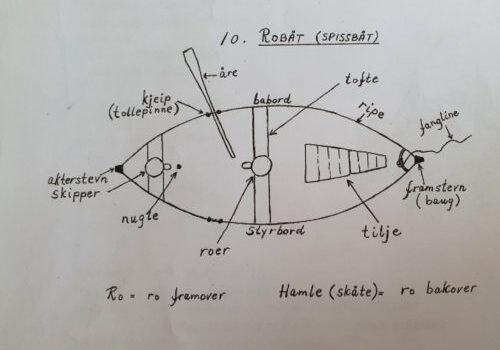 10. ROBÅT (SPISSBÅT)
åre
tofte
kjeip
(tollepinne)
babord
ripe
fangline
akterstevn
skipper
framstern
(baug)
nugte
Styrbord
tilje
roer
Ro = ro framover
Hamle (skåte) = ro bakover